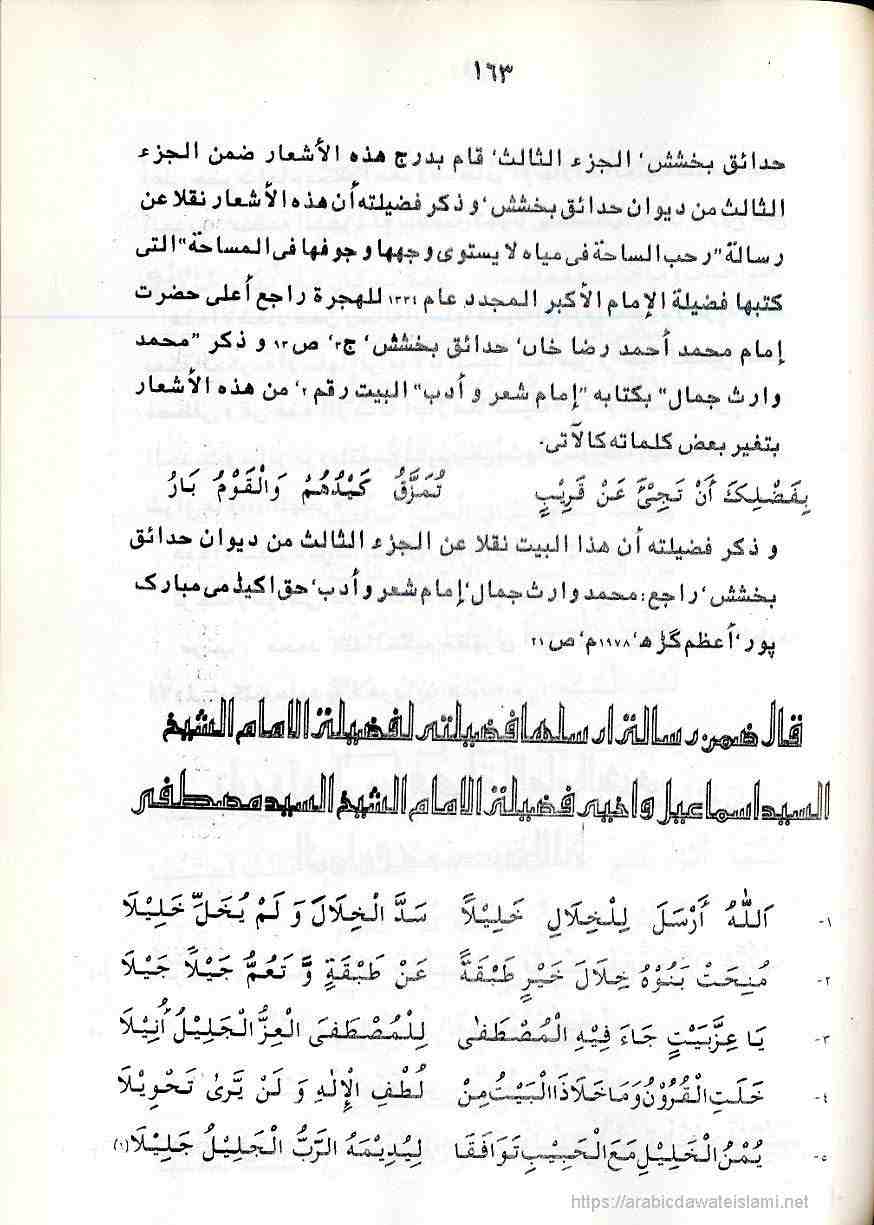 ١٦٣
حدائق بخشش، الجزء الثالث، قام بدرج هذه الأشعار ضمن الجزء
الثالث من ديوان حدائق بخشش، و ذكر فضيلته أن هذه الأشعار نقلا عن
رسالة "رحب الساحة فى مياه لا يستوى وجهها و جوفها فى المساحة" التى
كتبها فضيلة الإمام الأكبر المجدد عام ١٣٣٤ للهجرة راجع أعلى حضرت
إمام محمد أحمد رضا خاں، حدائق بخشش، ج٣، ص١٣ و ذكر "محمد
وارث جمال" بكتابه "إمام شعر و أدب" البيت رقم ٢، من هذه الأشعار
بتغير بعض كلماته كالآتى.
بِفَضْلِكَ أَنْ تَجِئْ عَنْ قَرِيْبٍ تُمَزَّقُ كَيْدُهُمْ وَالْقَوْمُ بَارُ
و ذكر فضيلته أن هذا البيت نقلا عن الجزء الثالث من ديوان حدائق
بخشش، راجع: محمد وارث جمال، إمام شعر و أدب، حق اكيڈمى مبارک
پور، أعظم گڑھ، ١٩٧٨م، ص ٢١
قال ضمن رسالة ارسلها فضيلته لفضيلة الامام الشيخ
السيد اسماعيل و اخيه فضيلة الامام الشيخ السيد مصطفى
١- اَللّٰهُ أَرْسَلَ لِلْخِلَالِ خَلِيْلًا سَدَّ الْخِلَالَ وَ لَمْ يُخَلِّ خَلِيْلَا
٢- مُنِحَتْ بَنُوْهُ خِلَالَ خَيْرٍ طَبْقَةً عَنْ طَبْقَةٍ وَّ تَعُمُّ جَيْلًا جَيْلَا
٣- يَا عِزَّ بَيْتٍ جَاءَ فِيْهِ الْمُصْطَفٰى لِلْمُصْطَفَى الْعِزُّ الْجَلِيْلُ أُنِيْلَا
٤- خَلَتِ الْقُرُوْنُ وَمَا خَلَا ذَا الْبَيْتُ مِنْ لُطْفِ الْإِلٰهِ وَ لَنْ يَّرىٰ تَحْوِيْلَا
٥- يُمْنُ الْخَلِيْلِ مَعَ الْحَبِيْبِ تَوَافَقَا لِيُدِيْمَهُ الرَّبُّ الْجَلِيْلُ جَلِيْلَا (١)
https://arabicdawateislami.net